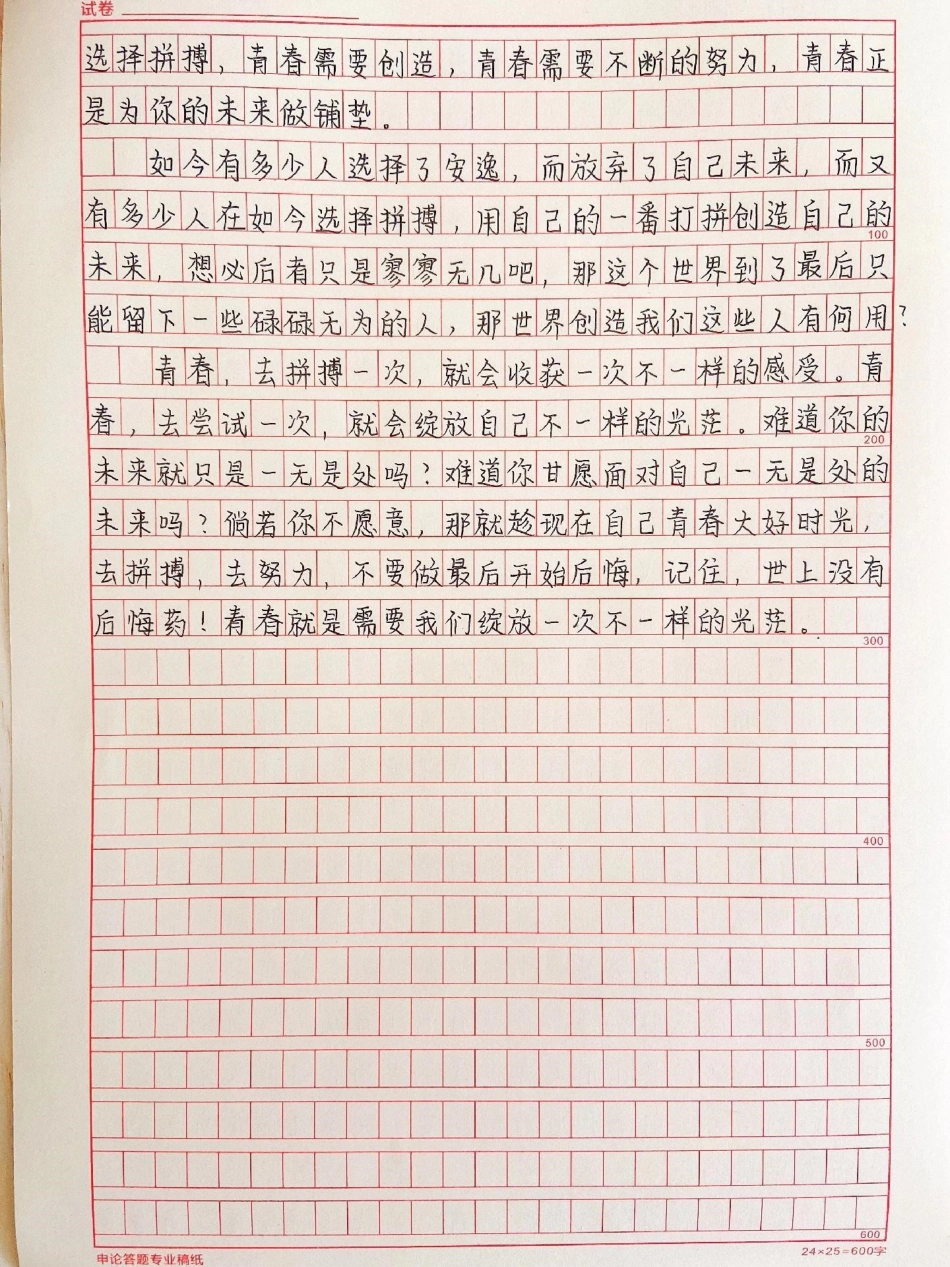 试卷
选择拼搏，青春需要创造，青春需要不断的努力，青春正
是为你的未来做铺垫。
如今有多少人选择了安逸，而放弃了自己未来，而又
有多少人在如今选择拼搏，用自己的一番打拼创造自己的
100
未来，想必后者只是寥寥无几吧，那这个世界到了最后只
能留下一些碌碌无为的人，那世界创造我们这些人有何用？
青春，去拼搏一次，就会收获一次不一样的感受。青
春，去尝试一次，就会绽放自己不一样的光茫。难道你的
200
未来就只是一无是处吗？难道你甘愿面对自己一无是处的
未来吗？倘若你不愿意，那就趁现在自己青春大好时光，
去拼搏，去努力，不要做最后开始后悔，记住，世上没有
后悔药！青春就是需要我们绽放一次不一样的光茫。
300
400
500
600
申论答题专业稿纸
24×25=600字